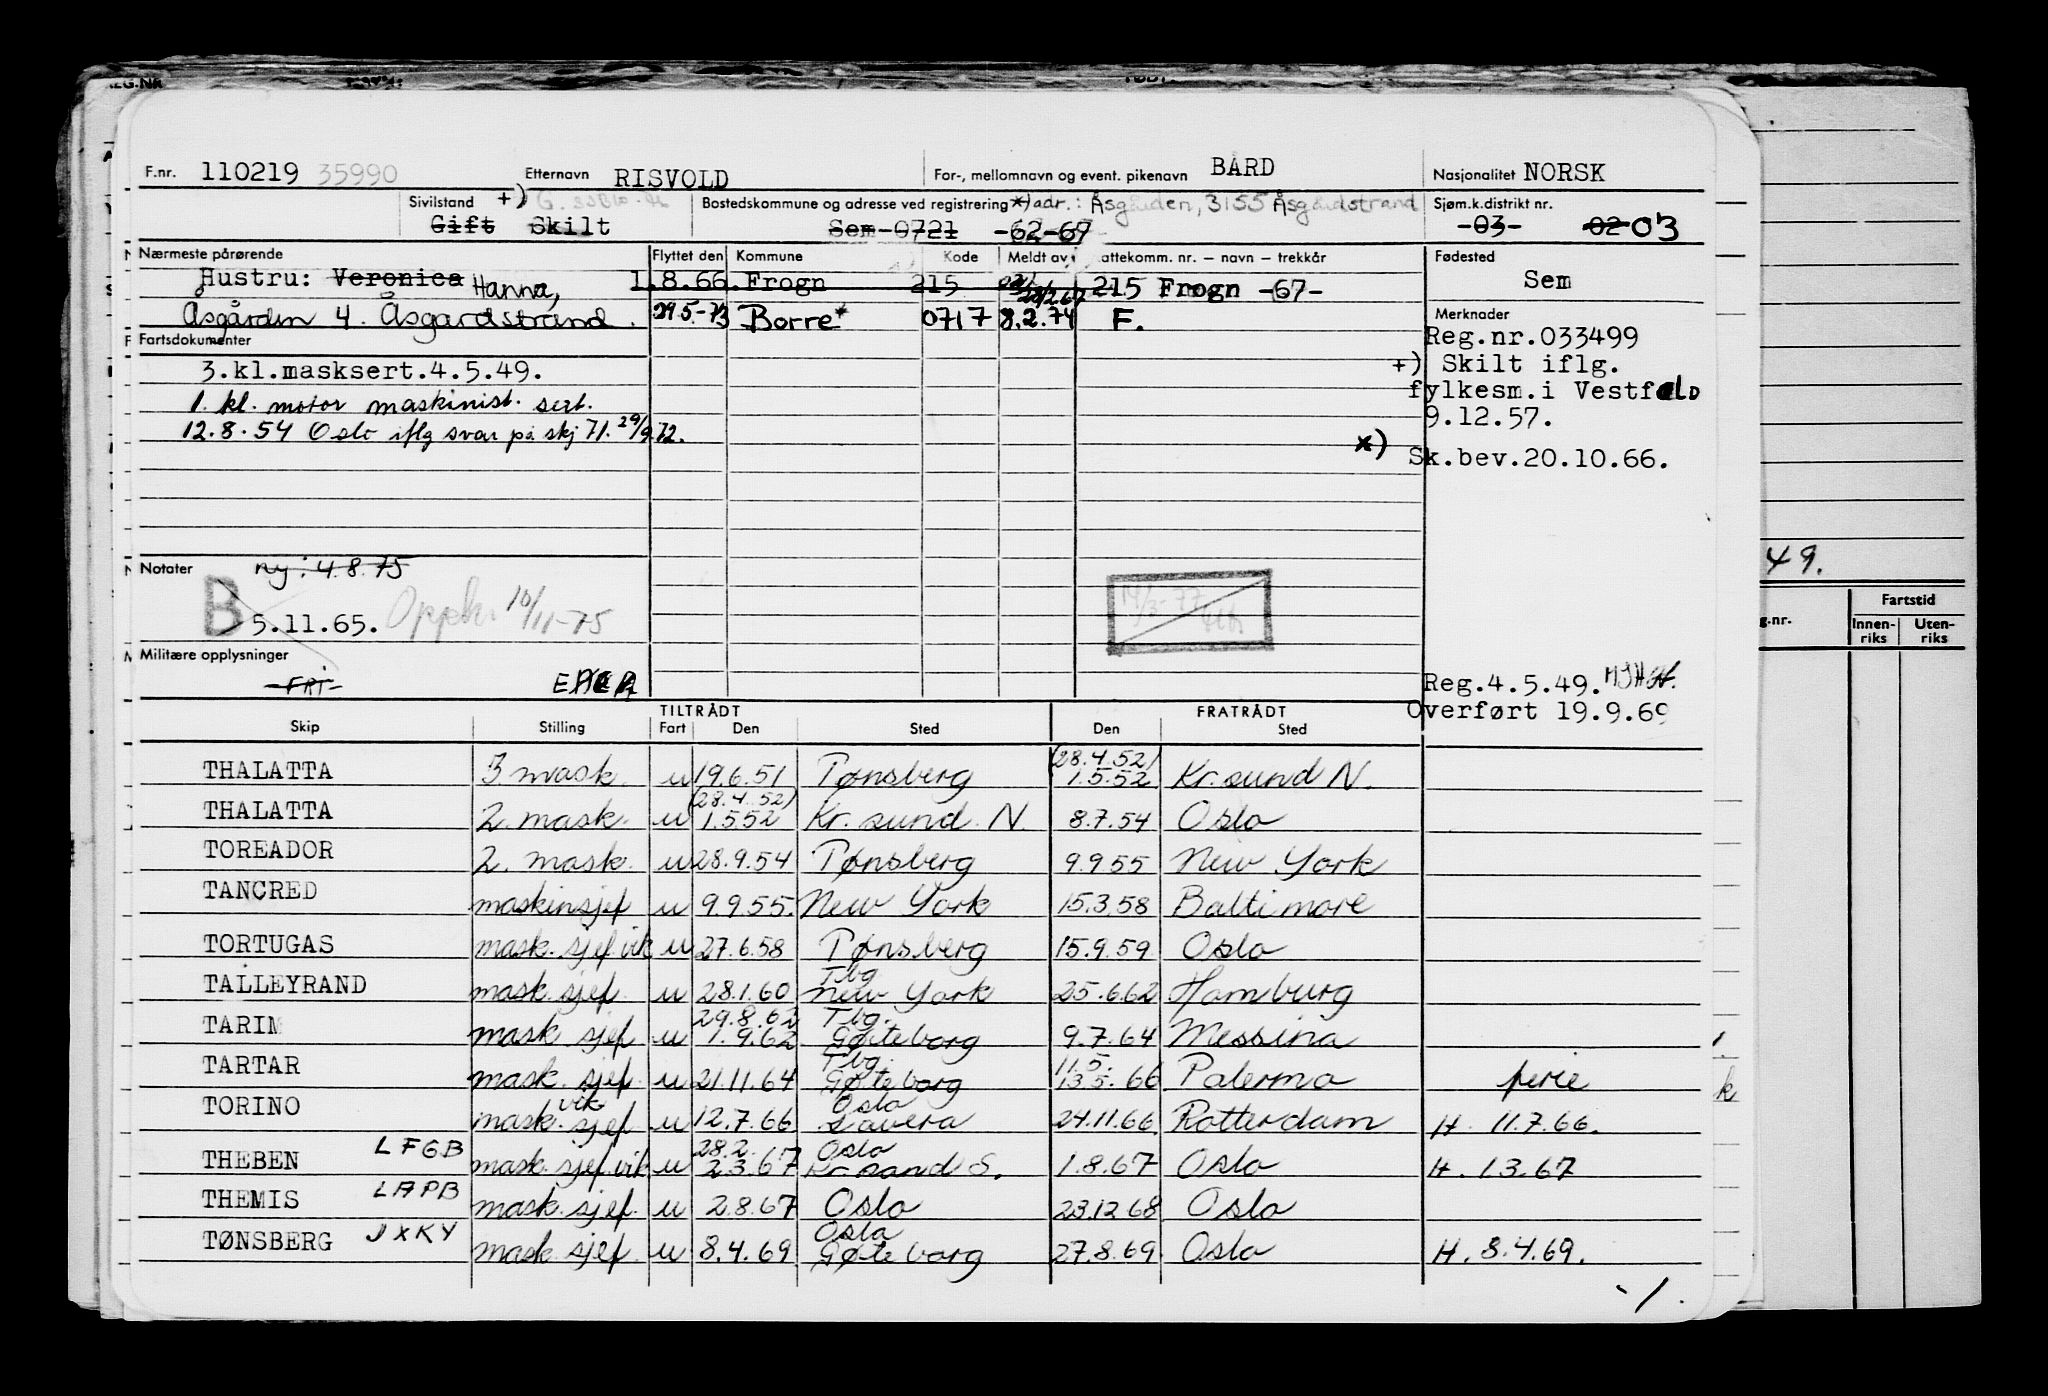 F.nr. 110219 35990 Etternavn RISVOLD For-, mellomnavn og event. pikenavn BÅRD Nasjonalitet NORSK
Sivilstand +) Bostedskommune og adresse ved registrering *)adr.: Åsgården, 3155 Åsgårdstrand Sjøm.k.distrikt nr.
Gift Skilt Sem-0721 -62-67 -03- 02 03
Nærmeste pårørende Flyttet den Kommune Kode Meldt av Skattekomm. nr. – navn – trekkår Fødested
Hustru: Veronica Hanna, 1.8.66. Frogn 215 215 Frogn -67- Sem
Åsgården 4. Åsgardstrand. 29.5-73 Borre* 0717 8.2.74 F. Merknader
Fartsdokumenter Reg.nr.033499
3.kl.masksert.4.5.49. +) Skilt iflg.
1. kl. motor maskinist. sert. fylkesm.i Vestfold
12.8.54 Oslo iflg svar på skj 71. 29/9.72. 9.12.57.
x) Sk.bev.20.10.66.
49.
Notater ny: 4.8.75
B 5.11.65. 10/11-75
14/3-77
Fartstid
Innen-riks Uten-riks
Militære opplysninger
-FRI- Reg.4.5.49.
Overført 19.9.69
TILTRÅDT FRATRÅDT
Skip Stilling Fart Den Sted Den Sted
(28.4.52)
THALATTA 3 mask. u 19.6.51 Tønsberg 1.5.52 Kr.sund N.
(28.4.52)
THALATTA 2. mask. u 1.5.52 Kr. sund. N. 8.7.54 Oslo
TOREADOR 2. mask. u 28.9.54 Tønsberg 9.9.55 New York
TANCRED maskinsjef u 9.9.55. New York 15.3.58 Baltimore
TORTUGAS mask. sjef vik u 27.6.58 Tønsberg 15.9.59 Oslo
Tbg
TALLEYRAND mask. sjef. u 28.1.60 New York 25.6.62 Hamburg
29.8.62 Tbg.
TARIM mask sjef u 1.9.62 Gøteborg 9.7.64 Messina
Tbg. 11.5.
TARTAR mask. sjef. u 21.11.64 Gøteborg 13.5.66 Palermo ferie
vik Oslo
TORINO mask. sjef u 12.7.66 Savera 24.11.66. Rotterdam H. 11.7.66.
28.2. Oslo
THEBEN LFGB mask. sjef. vik u 2.3.67 Kr.sand S. 1.8.67 Oslo H. 1.3.67
THEMIS LAPB mask. sjef. u 2.8.67 Oslo 23.12.68 Oslo
Oslo
TØNSBERG JXKY mask sjef u 8.4.69 Gøteborg 27.8.69. Oslo H. 8.4.69.
-1.